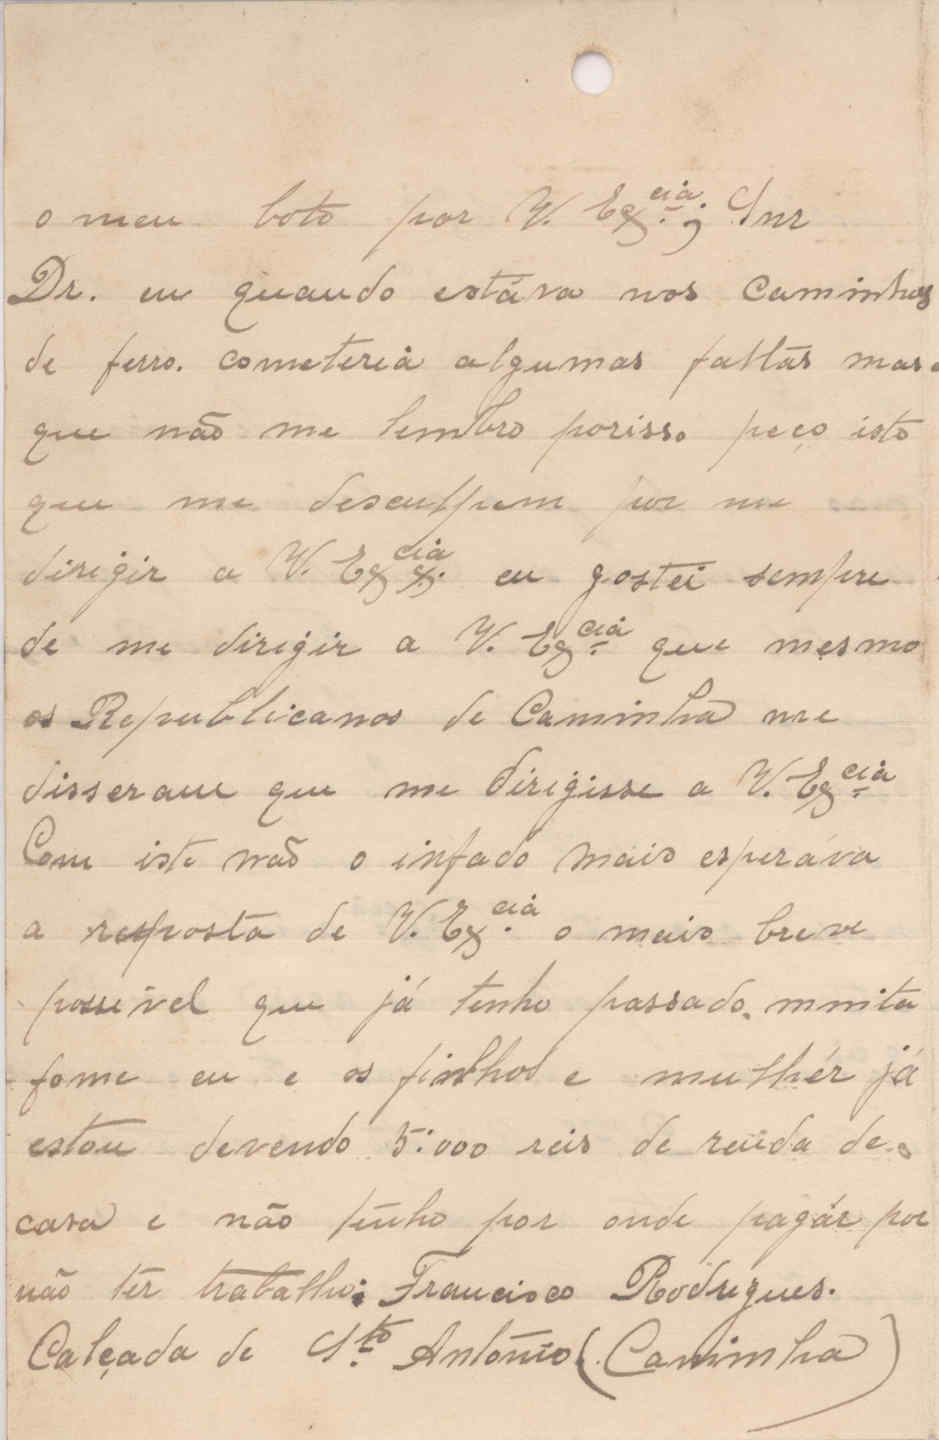 o meu boto por V. Exᶜⁱᵃ.; Snr
Dr. eu quando estáva nos Caminhos
de ferro. cometeria algumas faltas mas
que não me lembro porisso peço isto
que me desculpem por me
dirigir a V. Exᶜⁱᵃ. eu gostei sempre
de me dirigir a V. Exᶜⁱᵃ. que mesmo
os Republicanos de Caminha me
disseram que me dirigisse a V. Exᶜⁱᵃ
Com iste não o infado mais esperáva
a resposta de V. Exᶜⁱᵃ. o mais breve
possivel que já tenho passado muita
fome eu e os finlhos e mulhér já
estou devendo 5:000 reis de renda de
casa e não tenho por onde pagár por
não têr trabalho: Francisco Rodrigues.
Calçada de Sᵗᵒ. António (Caminha)